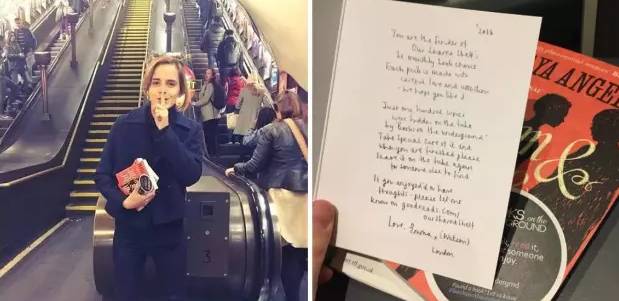 3
2016
You are the finder of
Our Shared Shelf's
bi monthly book choice
Each pick is made with
careful love and attention
- we hope you like it
Just one hundred copies
were hidden on the tube
by Books on the Underground
Take special care of it and
when you are finished please
leave it on the tube again
for someone else to find
If you enjoyed it or have
thoughts - please let me
know on goodreads.com/
oursharedshelf
Love, Emma x (Watson)
London
YA ANGEL
&
KS on the
GROUND
it,
someone
enjoy.